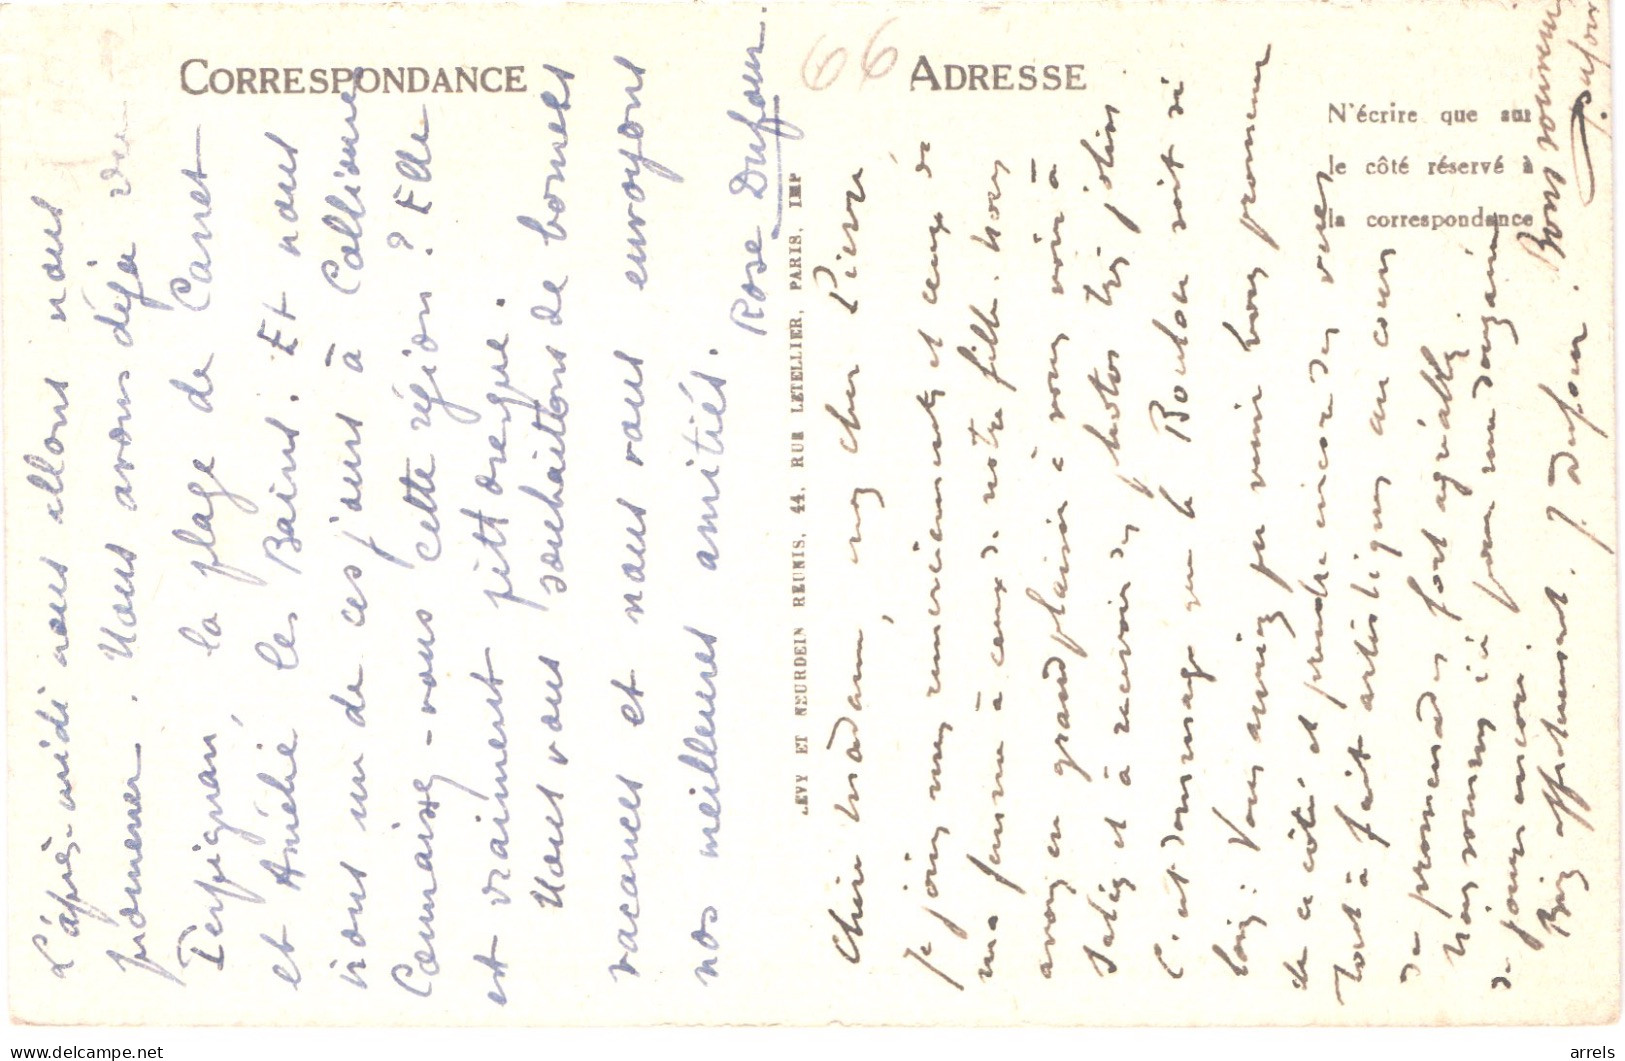 CORRESPONDANCE
L'après-midi nous allons nous
promener. Nous avons déjà vu
Perpignan, la plage de Canet
et Amélie les Bains. Et nous
irons un de ces jours à Collioure
Connaissez-vous cette région ? Elle
est vraiment pittoresque.
Nous vous souhaitons de bonnes
vacances et nous vous envoyons
nos meilleures amitiés.
Rose Dufour.
66
LEVY ET NEURDEIN REUNIS, 44, RUE LETELLIER, PARIS, IMP
ADRESSE
N'écrire que sur
le côté réservé à
la correspondance
Chère Madame, cher Pierre
Je joins mes remerciements et ceux de
ma femme à ceux de notre fille. Nous
avons eu grand plaisir à vous voir à
et à recevoir des photos très jolies
C'est dommage que le Boulou soit si
loin : Vous auriez pu venir vous promener
de ce côté et prendre encore des vues
tout à fait artistiques au cours
de promenades fort agréables
Nous sommes ici pour une douzaine
de jours encore.
Bien affectueusement. J. Dufour.
Bons souvenirs
Dufour